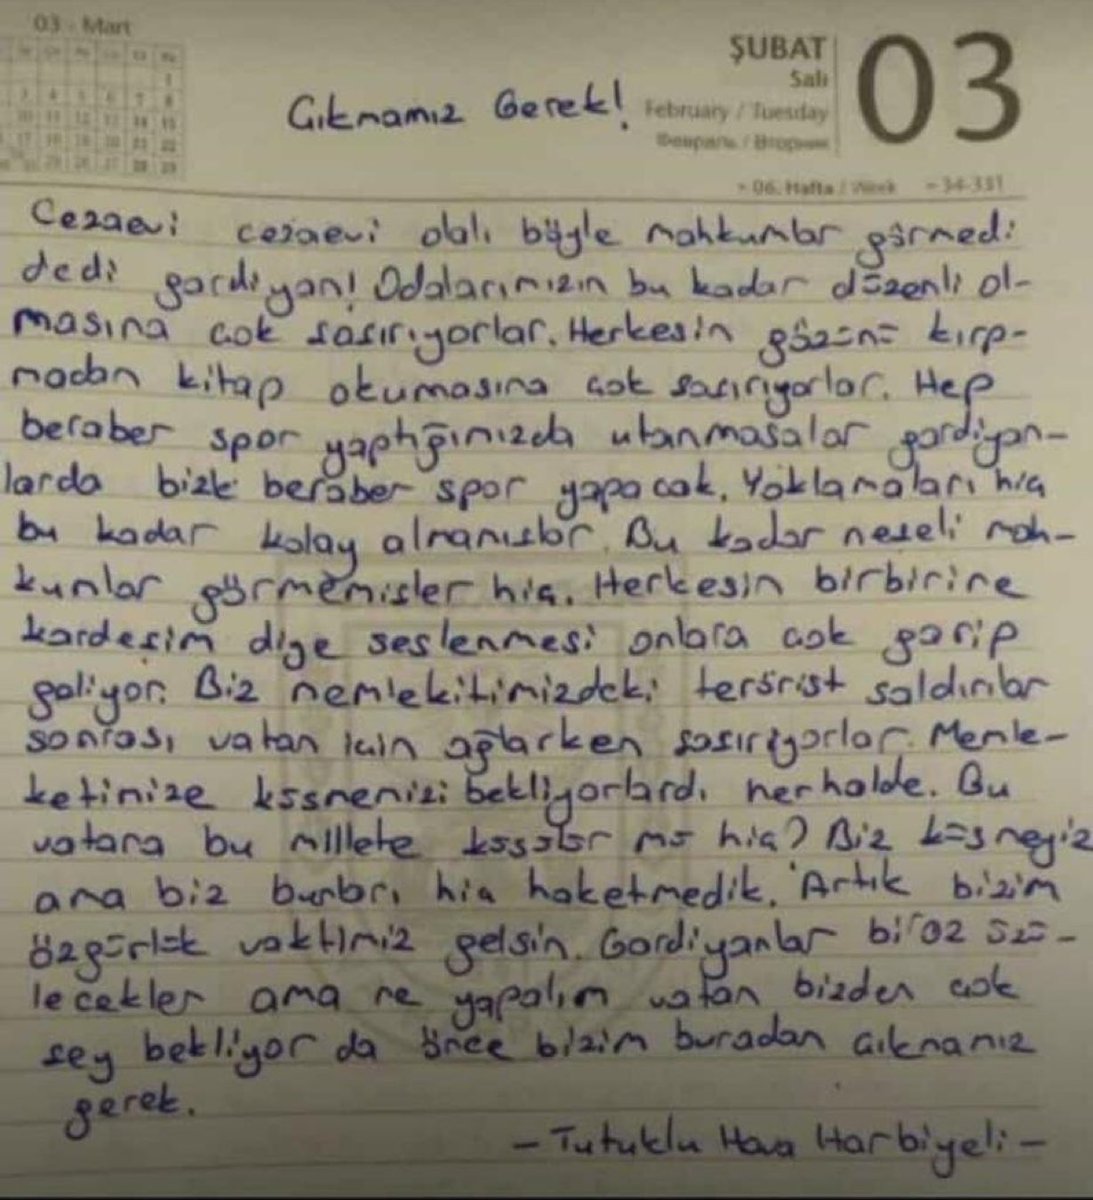 03 - Mart
ŞUBAT
Salı
03
February / Tuesday
Февраль / Вторник
06. Hafta / Week
34-331
Cıkmamız Gerek!
Cezaevi cezaevi olalı böyle mahkumlar görmedi
dedi gardiyan! Odalarımızın bu kadar düzenli ol-
masına cok sasırıyorlar. Herkesin gözünü kırp-
madan kitap okumasına cok sasırıyorlar. Hep
beraber spor yaptığımızda utanmasalar gardiyan-
larda bizle beraber spor yapacak. Yoklamaları hic
bu kadar kolay almamıslar. Bu kadar neseli mah-
kumlar görmemisler hic. Herkesin birbirine
kardesim diye seslenmesi onlara cok garip
geliyor. Biz memlekitimizdeki terörist saldırılar
sonrası vatan icin ağlarken sasırıyorlar. Memle-
ketimize küsmemizi bekliyorlardı herhalde. Bu
vatana bu millete küsülür mü hic? Biz küsmeyiz
ama biz bunları hic haketmedik. Artık bizim
özgürlük vaktimiz gelsin. Gardiyanlar biraz üzü-
lecekler ama ne yapalım vatan bizden cok
sey bekliyor da önce bizim buradan cıkmamız
gerek.
- Tutuklu Hava Harbiyeli -